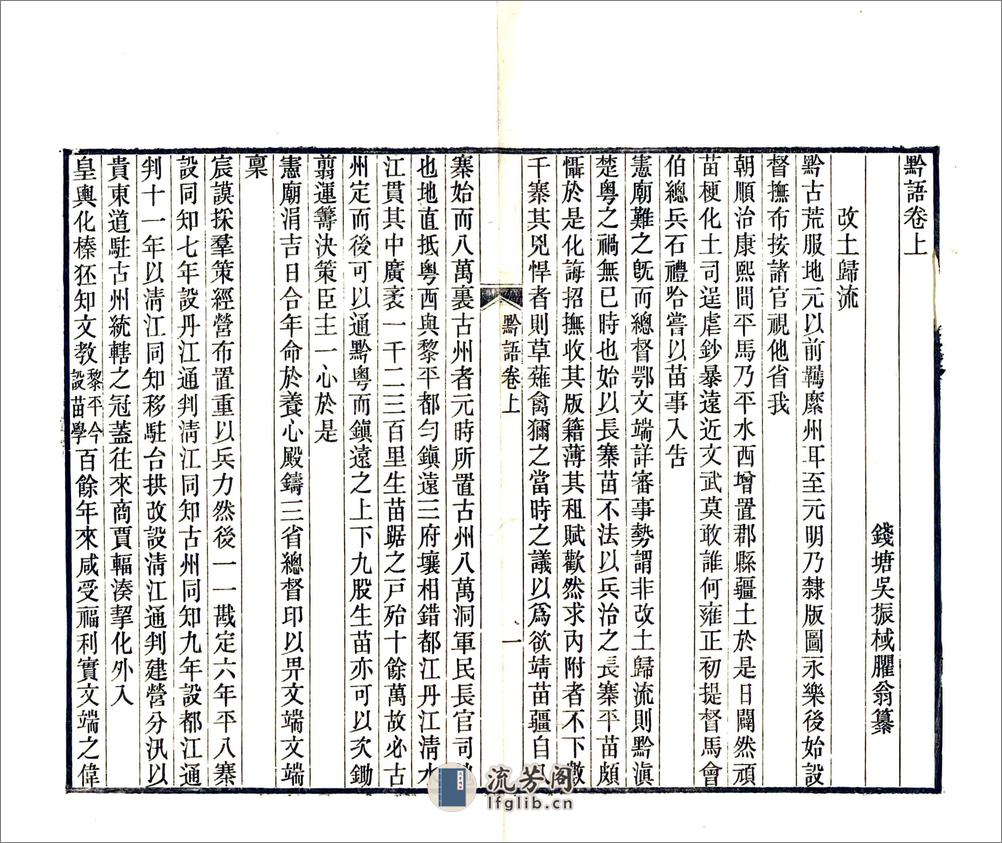 黔語卷上
錢塘吳振棫臞翁纂
改土歸流
黔古荒服地元以前羈縻州耳至元明乃隸版圖永樂後始設
督撫布按諸官視他省我
朝順治康熙間平馬乃平水西增置郡縣疆土於是日闢然頑
苗梗化土司逞虐鈔暴遠近文武莫敢誰何雍正初提督馬會
伯總兵石禮哈嘗以苗事入告
憲廟難之旣而總督鄂文端詳審事勢謂非改土歸流則黔滇
楚粵之禍無已時也始以長寨苗不法以兵治之長寨平苗頗
懾於是化誨招撫收其版籍薄其租賦歡然求內附者不下數
千寨其兇悍者則草薙禽獮之當時之議以爲欲靖苗疆自
黔語卷上
一
寨始而八萬裏古州者元時所置古州八萬洞軍民長官司
也地直抵粵西與黎平都勻鎭遠三府壤相錯都江丹江清水
江貫其中廣袤一千二三百里生苗踞之戸殆十餘萬故必古
州定而後可以通黔粵而鎭遠之上下九股生苗亦可以次鋤
翦運籌決策臣主一心於是
憲廟涓吉日合年命於養心殿鑄三省總督印以畀文端文端
稟
宸謨採羣策經營布置重以兵力然後一一戡定六年平八寨
設同知七年設丹江通判淸江同知古州同知九年設都江通
判十一年以淸江同知移駐台拱改設淸江通判建營分汛以
貴東道駐古州統轄之冠蓋往來商賈輻湊挈化外入
皇輿化榛狉知文教黎平今設苗學百餘年來咸受福利實文端之偉
流芳阁
lfglib.cn